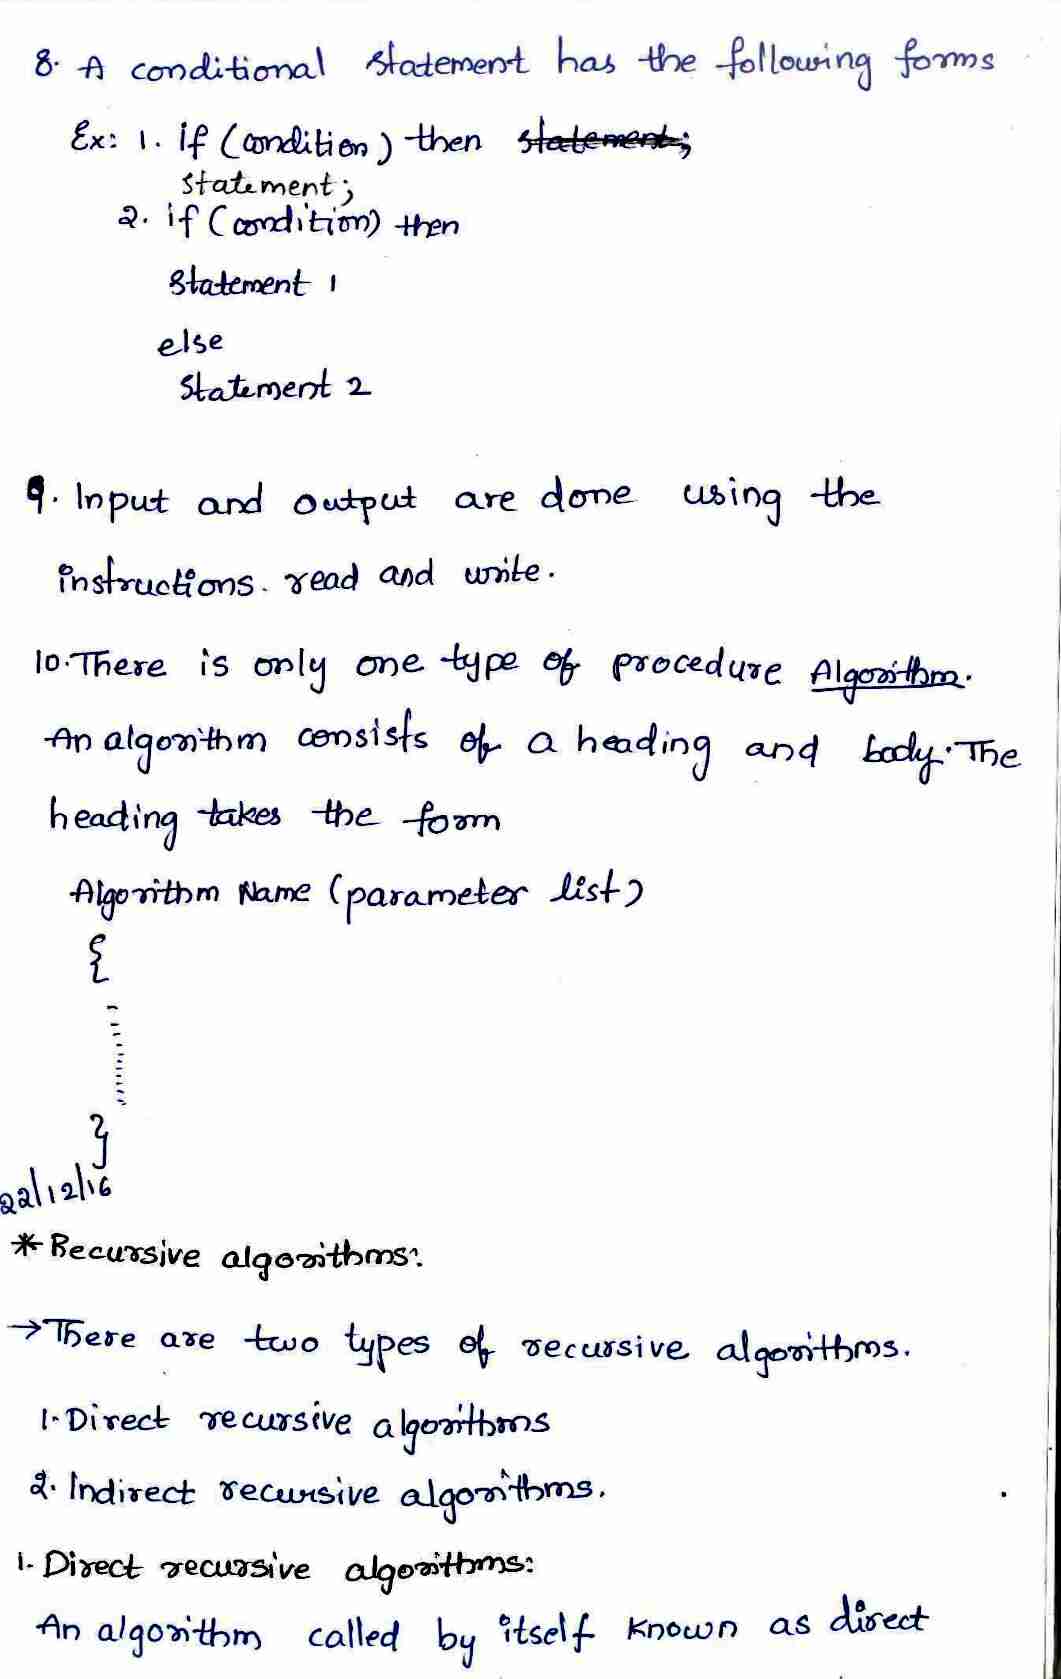 8. A conditional statement has the following forms
Ex: 1. if (condition) then statement;
statement;
2. if (condition) then
statement 1
else
statement 2
9. Input and output are done using the
instructions. read and write.
10. There is only one type of procedure Algorithm.
An algorithm consists of a heading and body. The
heading takes the form
Algorithm Name (parameter list)
{
}
22/12/16
* Recursive algorithms:
→ There are two types of recursive algorithms.
1. Direct recursive algorithms
2. Indirect recursive algorithms.
1. Direct recursive algorithms:
An algorithm called by itself known as direct